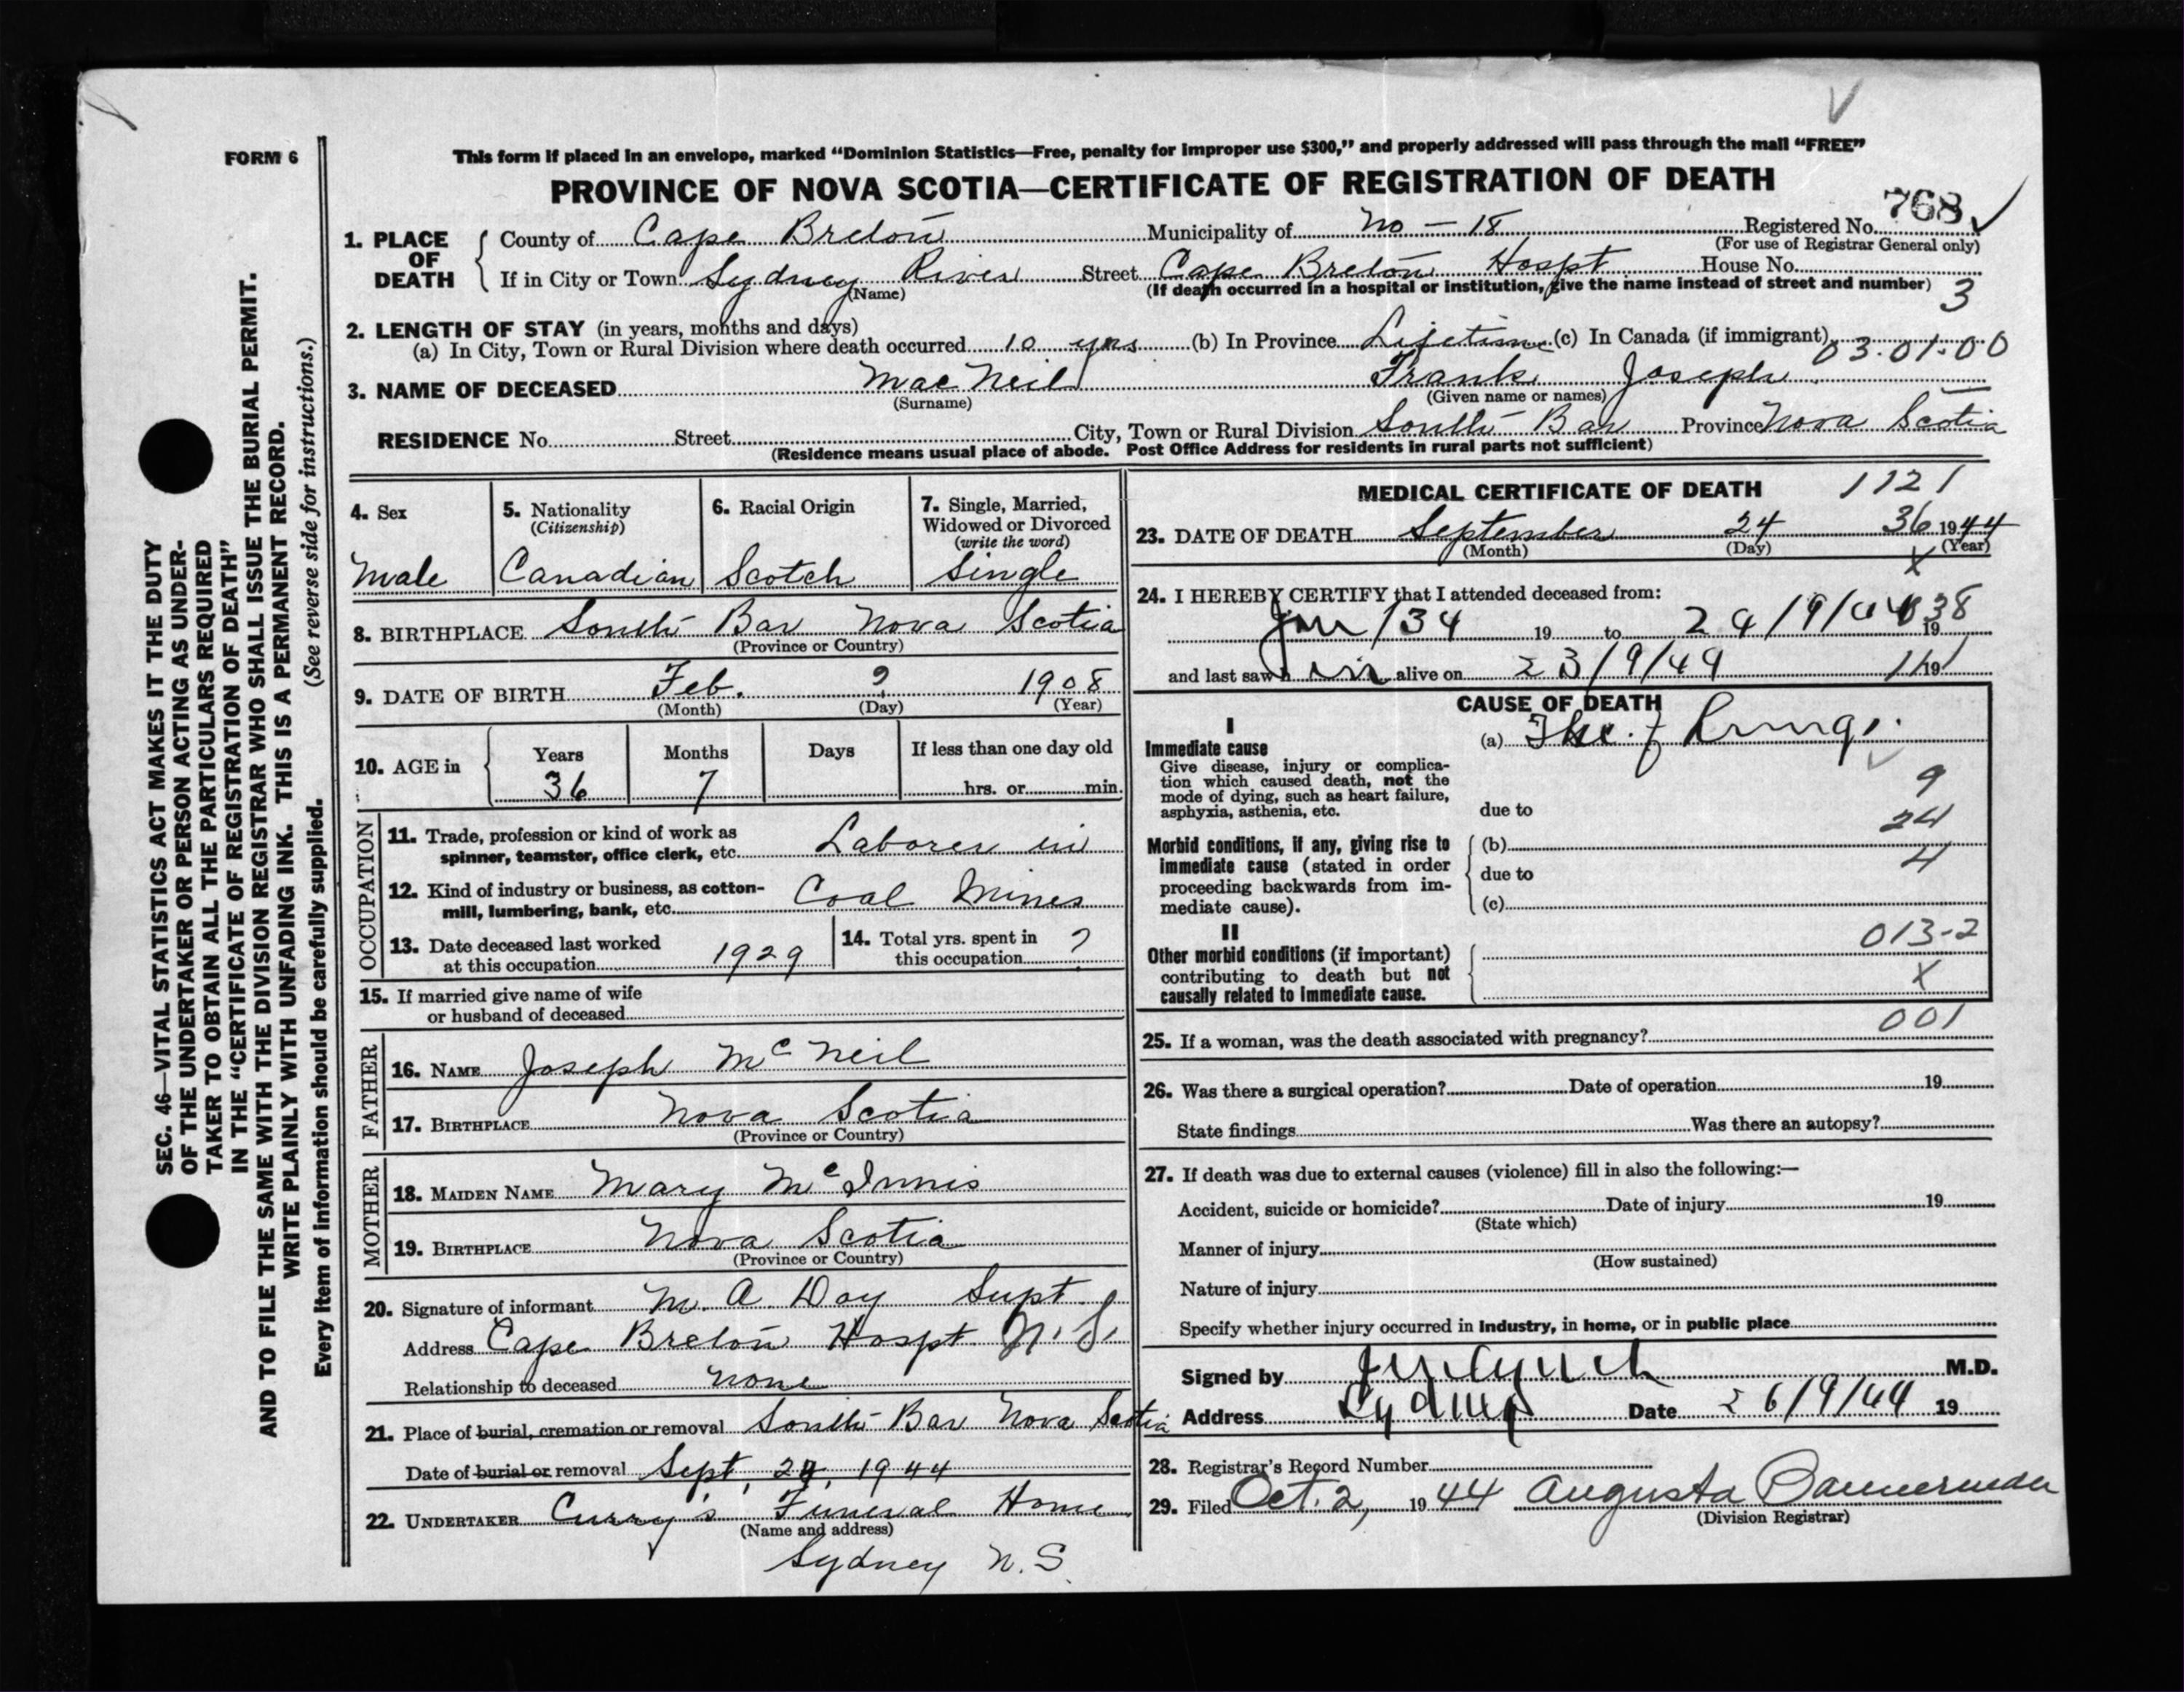 FORM 6
This form if placed in an envelope, marked “Dominion Statistics—Free, penalty for improper use $300,” and properly addressed will pass through the mail “FREE”
PROVINCE OF NOVA SCOTIA—CERTIFICATE OF REGISTRATION OF DEATH
768
1. PLACE OF DEATH
County of Cape Breton Municipality of No - 18 Registered No.
(For use of Registrar General only)
If in City or Town Sydney River Street Cape Breton Hospt. House No.
(Name) (If death occurred in a hospital or institution, give the name instead of street and number) 3
2. LENGTH OF STAY (in years, months and days)
(a) In City, Town or Rural Division where death occurred 10 yrs (b) In Province Lifetime (c) In Canada (if immigrant)
03.01.00
3. NAME OF DECEASED MacNeil Frank Joseph
(Surname) (Given name or names)
RESIDENCE No. Street City, Town or Rural Division South Bar Province Nova Scotia
(Residence means usual place of abode. Post Office Address for residents in rural parts not sufficient)
4. Sex
Male
5. Nationality
(Citizenship)
Canadian
6. Racial Origin
Scotch
7. Single, Married,
Widowed or Divorced
(write the word)
Single
8. BIRTHPLACE South Bar Nova Scotia
(Province or Country)
9. DATE OF BIRTH Feb. ? 1908
(Month) (Day) (Year)
10. AGE in Years Months Days If less than one day old
36 7 hrs. or min.
OCCUPATION
11. Trade, profession or kind of work as
spinner, teamster, office clerk, etc. Laborer in
12. Kind of industry or business, as cotton-
mill, lumbering, bank, etc. Coal Mines
13. Date deceased last worked
at this occupation 1929
14. Total yrs. spent in
this occupation ?
15. If married give name of wife
or husband of deceased
FATHER
16. NAME Joseph McNeil
17. BIRTHPLACE Nova Scotia
(Province or Country)
MOTHER
18. MAIDEN NAME Mary McInnis
19. BIRTHPLACE Nova Scotia
(Province or Country)
20. Signature of informant M. A Day Supt.
Address Cape Breton Hospt N.S.
Relationship to deceased none
21. Place of burial, cremation or removal South Bar Nova Scotia
Date of burial or removal Sept. 1944
22. UNDERTAKER Curry's Funeral Home
(Name and address)
Sydney N.S.
MEDICAL CERTIFICATE OF DEATH 1121
23. DATE OF DEATH September 24 36 1944
(Month) (Day) (Year)
X
24. I HEREBY CERTIFY that I attended deceased from:
Jan /34 19 to 24/9/44 19
038
and last saw h im alive on 23/9/44 19
111
CAUSE OF DEATH
I
Immediate cause
Give disease, injury or complica-
tion which caused death, not the
mode of dying, such as heart failure,
asphyxia, asthenia, etc.
(a) Tbc. of Lungs.
9
due to
24
Morbid conditions, if any, giving rise to
immediate cause (stated in order
proceeding backwards from im-
mediate cause).
(b)
4
due to
(c)
II
Other morbid conditions (if important)
contributing to death but not
causally related to immediate cause.
013-2
X
001
25. If a woman, was the death associated with pregnancy?
26. Was there a surgical operation? Date of operation 19
State findings Was there an autopsy?
27. If death was due to external causes (violence) fill in also the following:—
Accident, suicide or homicide? Date of injury 19
(State which)
Manner of injury
(How sustained)
Nature of injury
Specify whether injury occurred in industry, in home, or in public place
Signed by Lynch M.D.
Address Sydney Date 26/9/44 19
28. Registrar's Record Number
29. Filed Oct. 2, 1944 Augusta
(Division Registrar)
SEC. 46—VITAL STATISTICS ACT MAKES IT THE DUTY
OF THE UNDERTAKER OR PERSON ACTING AS UNDER-
TAKER TO OBTAIN ALL THE PARTICULARS REQUIRED
IN THE “CERTIFICATE OF REGISTRATION OF DEATH”
AND TO FILE THE SAME WITH THE DIVISION REGISTRAR WHO SHALL ISSUE THE BURIAL PERMIT.
WRITE PLAINLY WITH UNFADING INK. THIS IS A PERMANENT RECORD.
Every item of information should be carefully supplied. (See reverse side for instructions.)